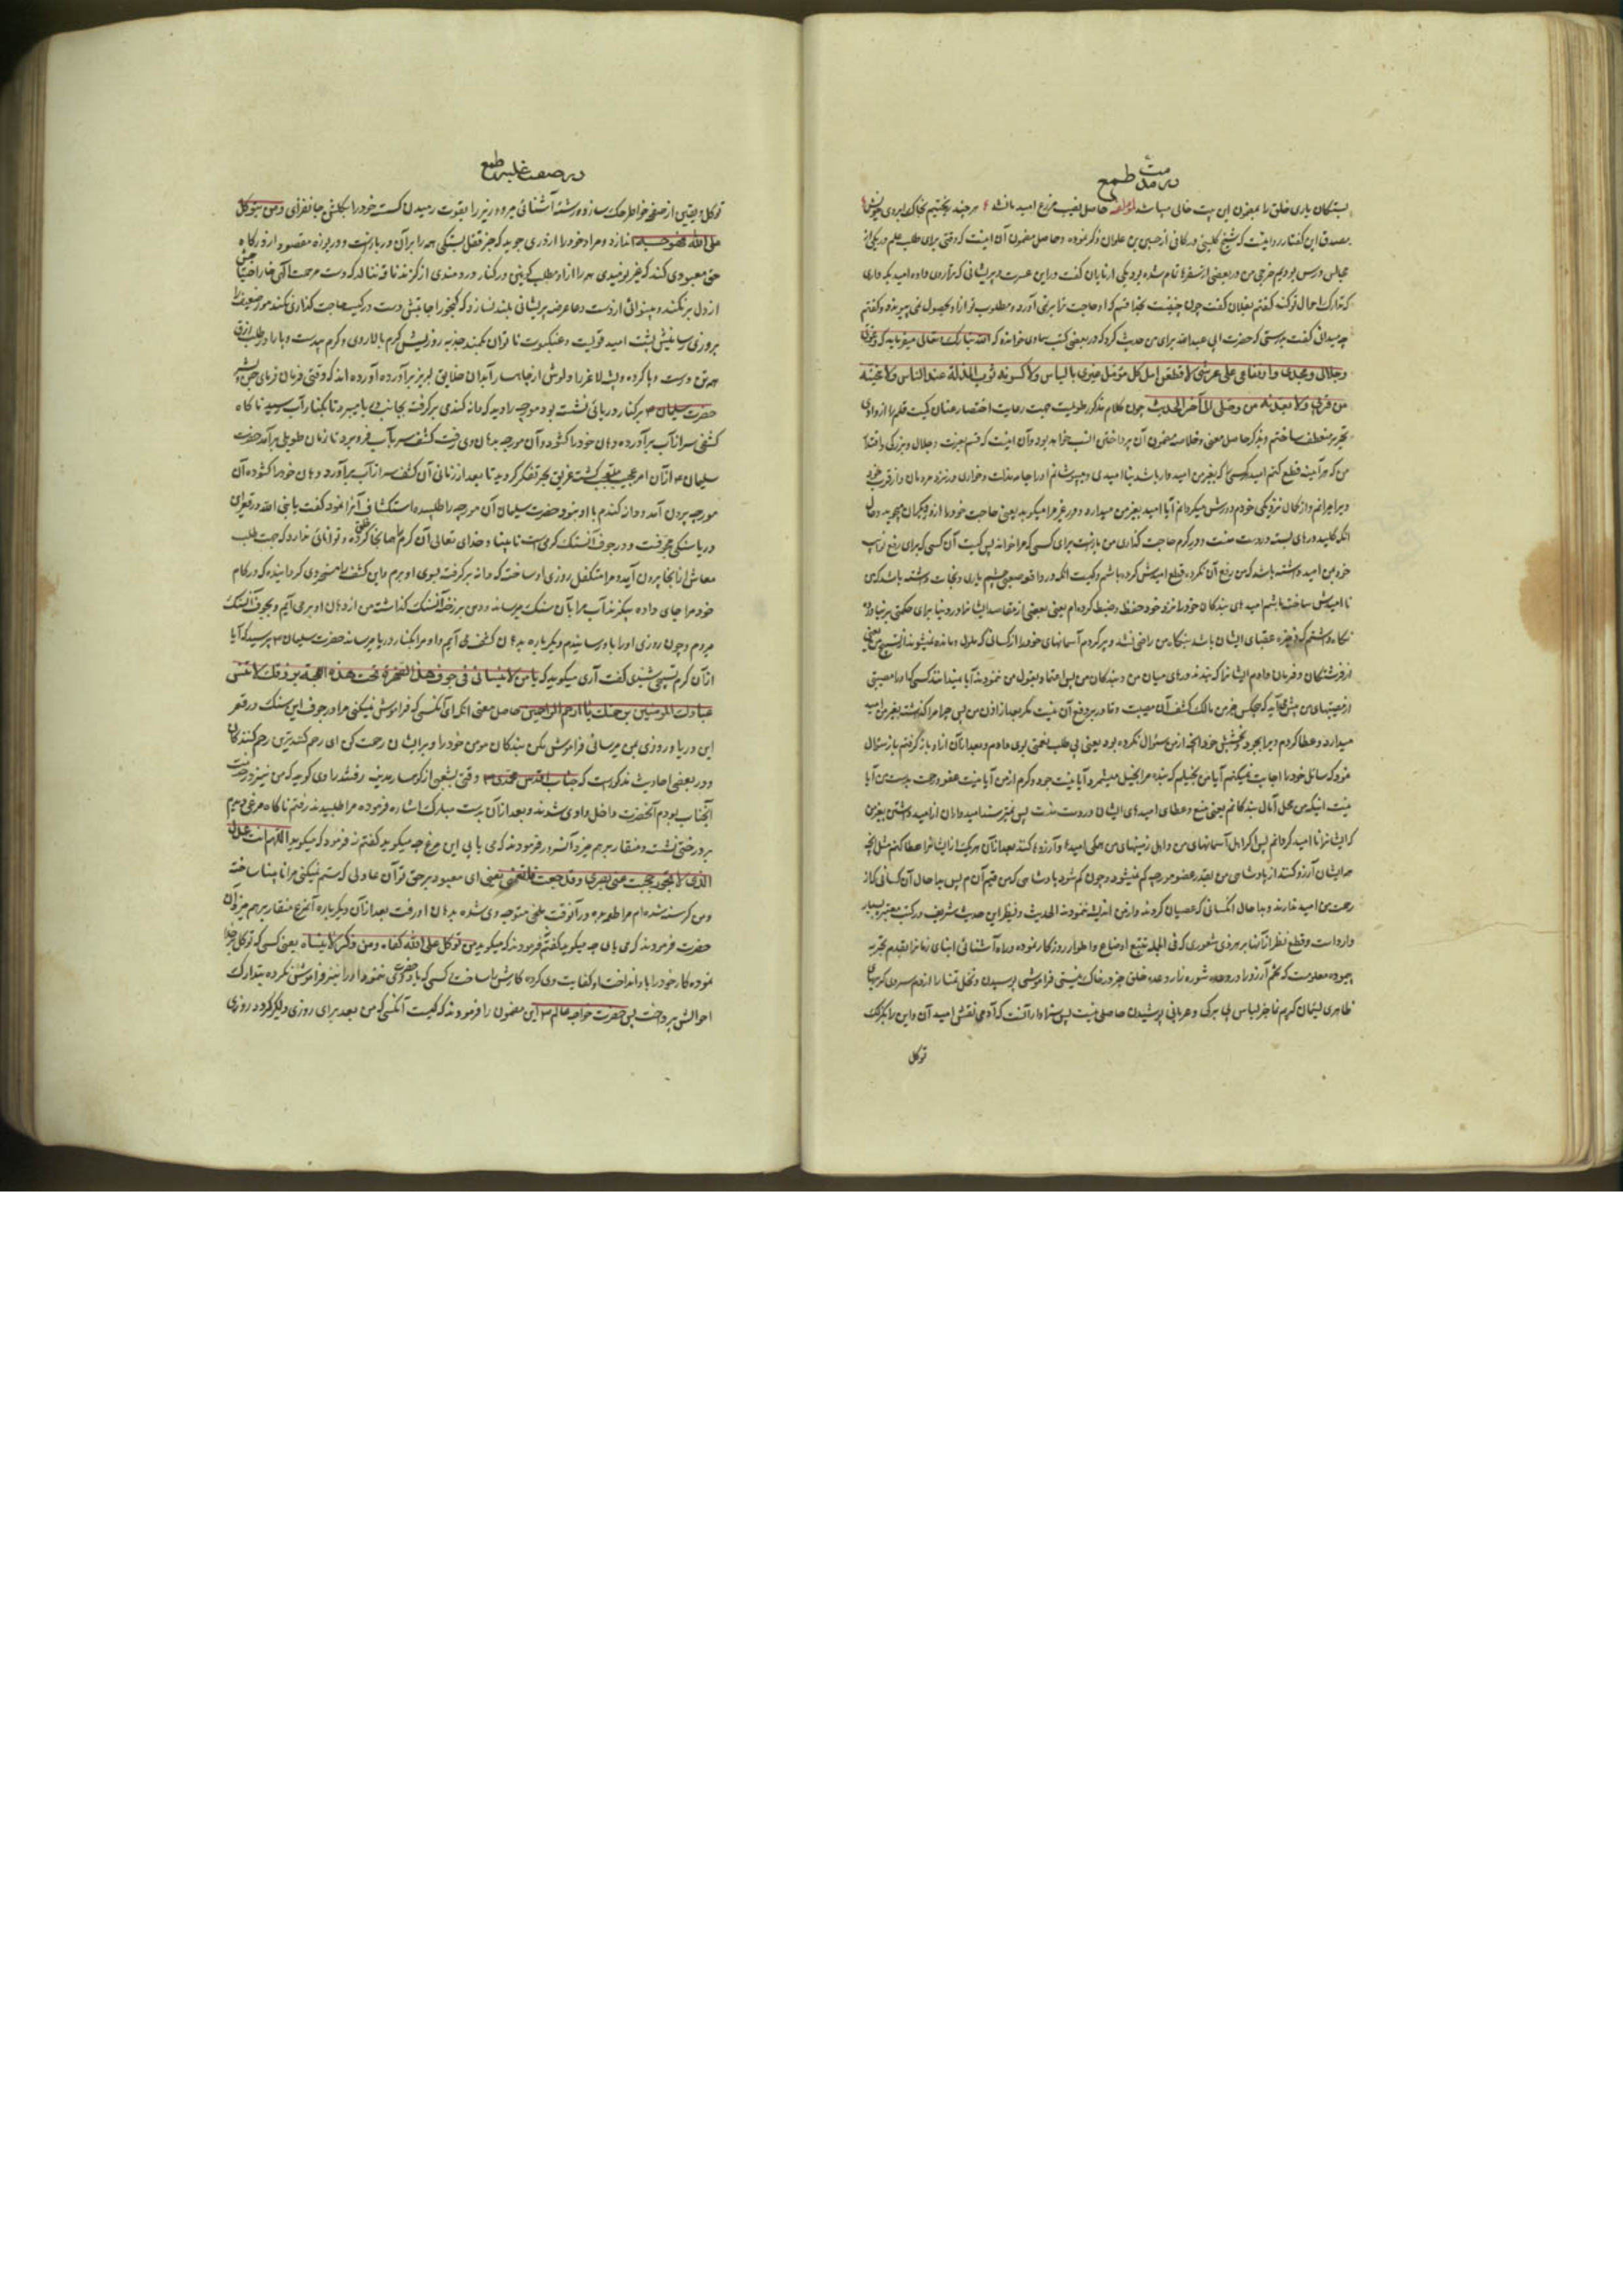 در مذمت طمع
بستکان یاری خلق را بمضمون این بیت خالی میباشد لمؤلفه حاصل نصیب مزرع امید ما نشد هر چند ریختیم بخاک آبروی خویش
مصدق این کفتار روایتیست که شیخ کلینی در کافی از حسین بن علوان ذکر نموده و حاصل مضمون آن اینست که وقتی برای طلب علم در یکی از
مجالس درس بودیم خرجی من در بعضی از سفرها تمام شده بود یکی از یاران کفت در این عسرت و پریشانی که ترا روی داده امید بکه داری
که تدارک حال تو کند کفتم بفلان کفت چون چنینست بخدا قسم که او حاجت ترا بر نمی آورد و مطلوب تو از او بحصول نمی پیوندد کفتم
چه میدانی کفت بدرستی که حضرت ابی عبدالله برای من حدیث کرد که در بعضی کتب سماوی خوانده که الله تبارک و تعالی میفرماید که و عزتی
و جلالی و مجدی و ارتفاعی علی عرشی لاقطعن امل کل مؤمل غیری بالیاس و لاکسونه ثوب المذلة عند الناس و لانحینه
من قربی و لابعدنه من وصلی الی آخر الحدیث چون کلام مذکور طولیست جهت رعایت اختصار عنان کمیت قلم را از وادی
تحریر منعطف ساختم و بذکر حاصل معنی و خلاصه مضمون آن پرداختن انسب خواهد بود و آن اینست که قسم بعزت و جلال و بزرکی و اقتدار
من که هر آینه قطع کنم امید هر کسی را که بغیر من امیدوار باشد بناامیدی و بپوشانم او را جامه مذلت و خواری در نزد مردمان و از قرب خود
ویرا برانم و از کمال نزدیکی خودم دورش میکردانم آیا امید بغیر من میدارد و در غیر مرا میکوبد یعنی حاجت خود را از دیکران میجوید و حال
آنکه کلید درهای بسته در دست منست و در کرم حاجت کذاری من بازست برای کسی که مرا خواند پس کیست آن کسی که برای رفع نوایب
خود بمن امید داشته باشد که من رفع آن نکرده قطع امیدش کرده باشم و کیست آنکه در واقعه صعبی چشم یاری و نجات داشته باشد که من
ناامیدش ساخته باشم امیدهای بندکان خود را نزد خود حفظ و ضبط کرده ام یعنی بعضی از مقاصد ایشانرا در دنیا برای حکمتی بر نیاورده
نکاه داشتم که ذخیره عقبای ایشان باشد بندکان من راضی نشدند و پر کردم آسمانهای خود را از کسانی که ملول و مانده نمیشوند از تسبیح من یعنی
از فرشتکان و فرمان دادم ایشانرا که نبندند درهای میان من و بندکان من پس اعتماد بقول من ننمودند آیا نمیدانند کسی که او را مصیبتی
از مصیبتهای من پیش آید که هیچکس جز من مالک کشف آن مصیبت و قادر بر دفع آن نیست مکر بعد از اذن من پس چرا مرا کذاشته بغیر من امید
میدارد و عطا کردم ویرا بجود و بخشش خود آنچه از من سؤال نکرده بود یعنی بی طلب نعمتی بوی دادم و بعد از آن از او باز کرفتم باز سؤال
نمود که سائل خود را اجابت نمیکنم آیا من بخیلم که بنده مرا بخیل میشمرد آیا نیست جود و کرم از من آیا نیست عفو و رحمت بدست من آیا
نیست اینکه من محل آمال بندکانم یعنی منع و عطای امیدهای ایشان در دست منست پس نمیترسند امیدواران از امید داشتن بغیر من
که ایشانرا ناامید کردانم پس اکر اهل آسمانهای من و اهل زمینهای من همکی امید و آرزو کنند بعد از آن هر یک از ایشانرا عطا کنم مثل آنچه
همه ایشان آرزو کنند از پادشاهی من بقدر عضو مورچه کم نمیشود و چون کم شود پادشاهی که من قیم آنم پس بدا حال آن کسانی که از
رحمت من امید ندارند و بدا حال آنکسانی که عصیان کردند و از من اندیشه ننمودند الحدیث و نظیر این حدیث شریف در کتب معتبره بسیار
وارد است و قطع نظر از اینها بر هر ذی شعوری که فی الجمله تتبع اوضاع و اطوار روزکار نموده و راه آشنائی ابنای زمانرا بقدم تجربه
پیموده معلومست که تخم آرزو را در شوره زار وعده خلق جز در خاک نیستی فراموشی پوسیدن و نخل تمنا را از دم سردی کرمیهای
ظاهری لئیمان کریم نما جز لباس بی برکی و عریانی پوشیدن حاصلی نیست پس سزاوار آنست که آدمی نقش امید آن و این را بکزلک
توکل
در صفت غلبه طمع
توکل و یقین از صفحه خواطر حک سازد و رشته آشنائی عمرو و زید را بقوت رمیدن کسسته خود را بکلشن جانفزای و من یتوکل
علی الله فهو حسبه اندازد و مراد خود را از دری جوید که جز قفل بستکی همه را بر آن در بارست و دریوزه مقصود از درکاه
حق معبودی کند که غیر نومیدی همه را از او مطلب یابی در کنار دردمندی از کزند ناقه ننالد که دست مرحمت آلهی خار احتیاجش
از دل بر نکند و بینوائی از دست دعا عرضه پریشانی بلند نسازد که کنجور اجابتش دست در کیسه حاجت کذاری نکند مور ضعیف را
بروزی رسانیش پشت امید قویست و عنکبوت ناتوان بکمند جذبه
همه تن دست و پا کرده و پشه لاغر را
حضرت سلیمان ع بر کنار دریائی نشسته بود مورچه را دید که دانه کندمی بر کرفته بجانب دریا میبرد تا بکنار آب رسید ناکاه
کشفی سر از آب برآورده دهان خود را کشود و آن مورچه بدهان وی رفت کشف سر بآب فرو برد تا زمان طویلی برآمد حضرت
سلیمان ع از آن امر عجیب متعجب کشته غریق بحر تفکر کردید تا بعد از زمانی آن کشف سر از آب برآورد و دهان خود را کشوده آن
مورچه بیرون آمد و دانه کندم با او نبود حضرت سلیمان آن مورچه را طلبیده استکشاف آنرا نمود کفت یا نبی الله در قعر این
دریا سنکی مجوفست و در جوف آن سنک کرمیست نابینا و خدای تعالی آن کرم را همانجا خلق کرده و توانائی ندارد که جهت طلب
معاش از آنجا بیرون آید و مرا متکفل روزی او ساخت که دانه بر کرفته بسوی او برم و این کشف را مسخر من کردانیده که در کام
خود مرا جای داده بیکزند آب مرا بآن سنک میرساند و دهن بر رخنه آنسنک کذاشته من از دهان او بر می آیم و بجوف آن سنک
میروم و چون روزی او را باو رسانیدم دیکر باره بدهان کشف می آیم و او مرا بکنار دریا میرساند حضرت سلیمان ع پرسید که آیا
از آن کرم تسبیحی شنیدی کفت آری میکوید که یا من لا ینسانی فی جوف هذه الصخرة تحت هذه اللجة برزقک لا تنس
عبادک المؤمنین برحمتک یا ارحم الراحمین حاصل معنی آنکه ای آنکسی که فراموش نمیکنی مرا در جوف این سنک در قعر
این دریا و روزی بمن میرسانی فراموش مکن بندکان مومن خود را و بر ایشان رحمت کن ای رحم کننده ترین رحم کنندکان
و در بعضی احادیث مذکورست که جناب اقدس محمدی ص وقتی بشعبی از کوهسار مدینه رفتند راوی کوید که من نیز در خدمت
آنجناب بودم آنحضرت داخل وادی شدند و بعد از آن بدست مبارک اشاره فرموده مرا طلبیدند رفتم ناکاه مرغی دیدم
بر درختی نشسته و منقار بر هم میزد آنسرور فرمودند که می یابی این مرغ چه میکوید کفتم نه فرمود که میکوید اللهم انت العدل
الذی لا یجور حجبت عنی بصری و قد جعت فاطعمنی یعنی ای معبود بر حق تو آن عادلی که ستم نمیکنی مرا نابینا ساخته
و من کرسنه شده ام مرا طعمه ده در آنوقت ملخی متوجه وی شده بدهان او رفت بعد از آن دیکر باره آنمرغ منقار بر هم میزد آن
حضرت فرمودند که می یابی چه میکوید کفتم نه فرمودند که میکوید من توکل علی الله کفاه و من ذکره لا ینساه یعنی کسی که توکل بر خدا
نموده کار خود را باو انداخت او کفایت وی کرده کارش را ساخت کسی که یاد حق نمود او را نیز فراموش نکرده بتدارک
احوالش پرداخت پس حضرت خواجه عالم ص این مضمون را فرمودند که کیست آنکسی که من بعد برای روزی دلکیر کردد روزی